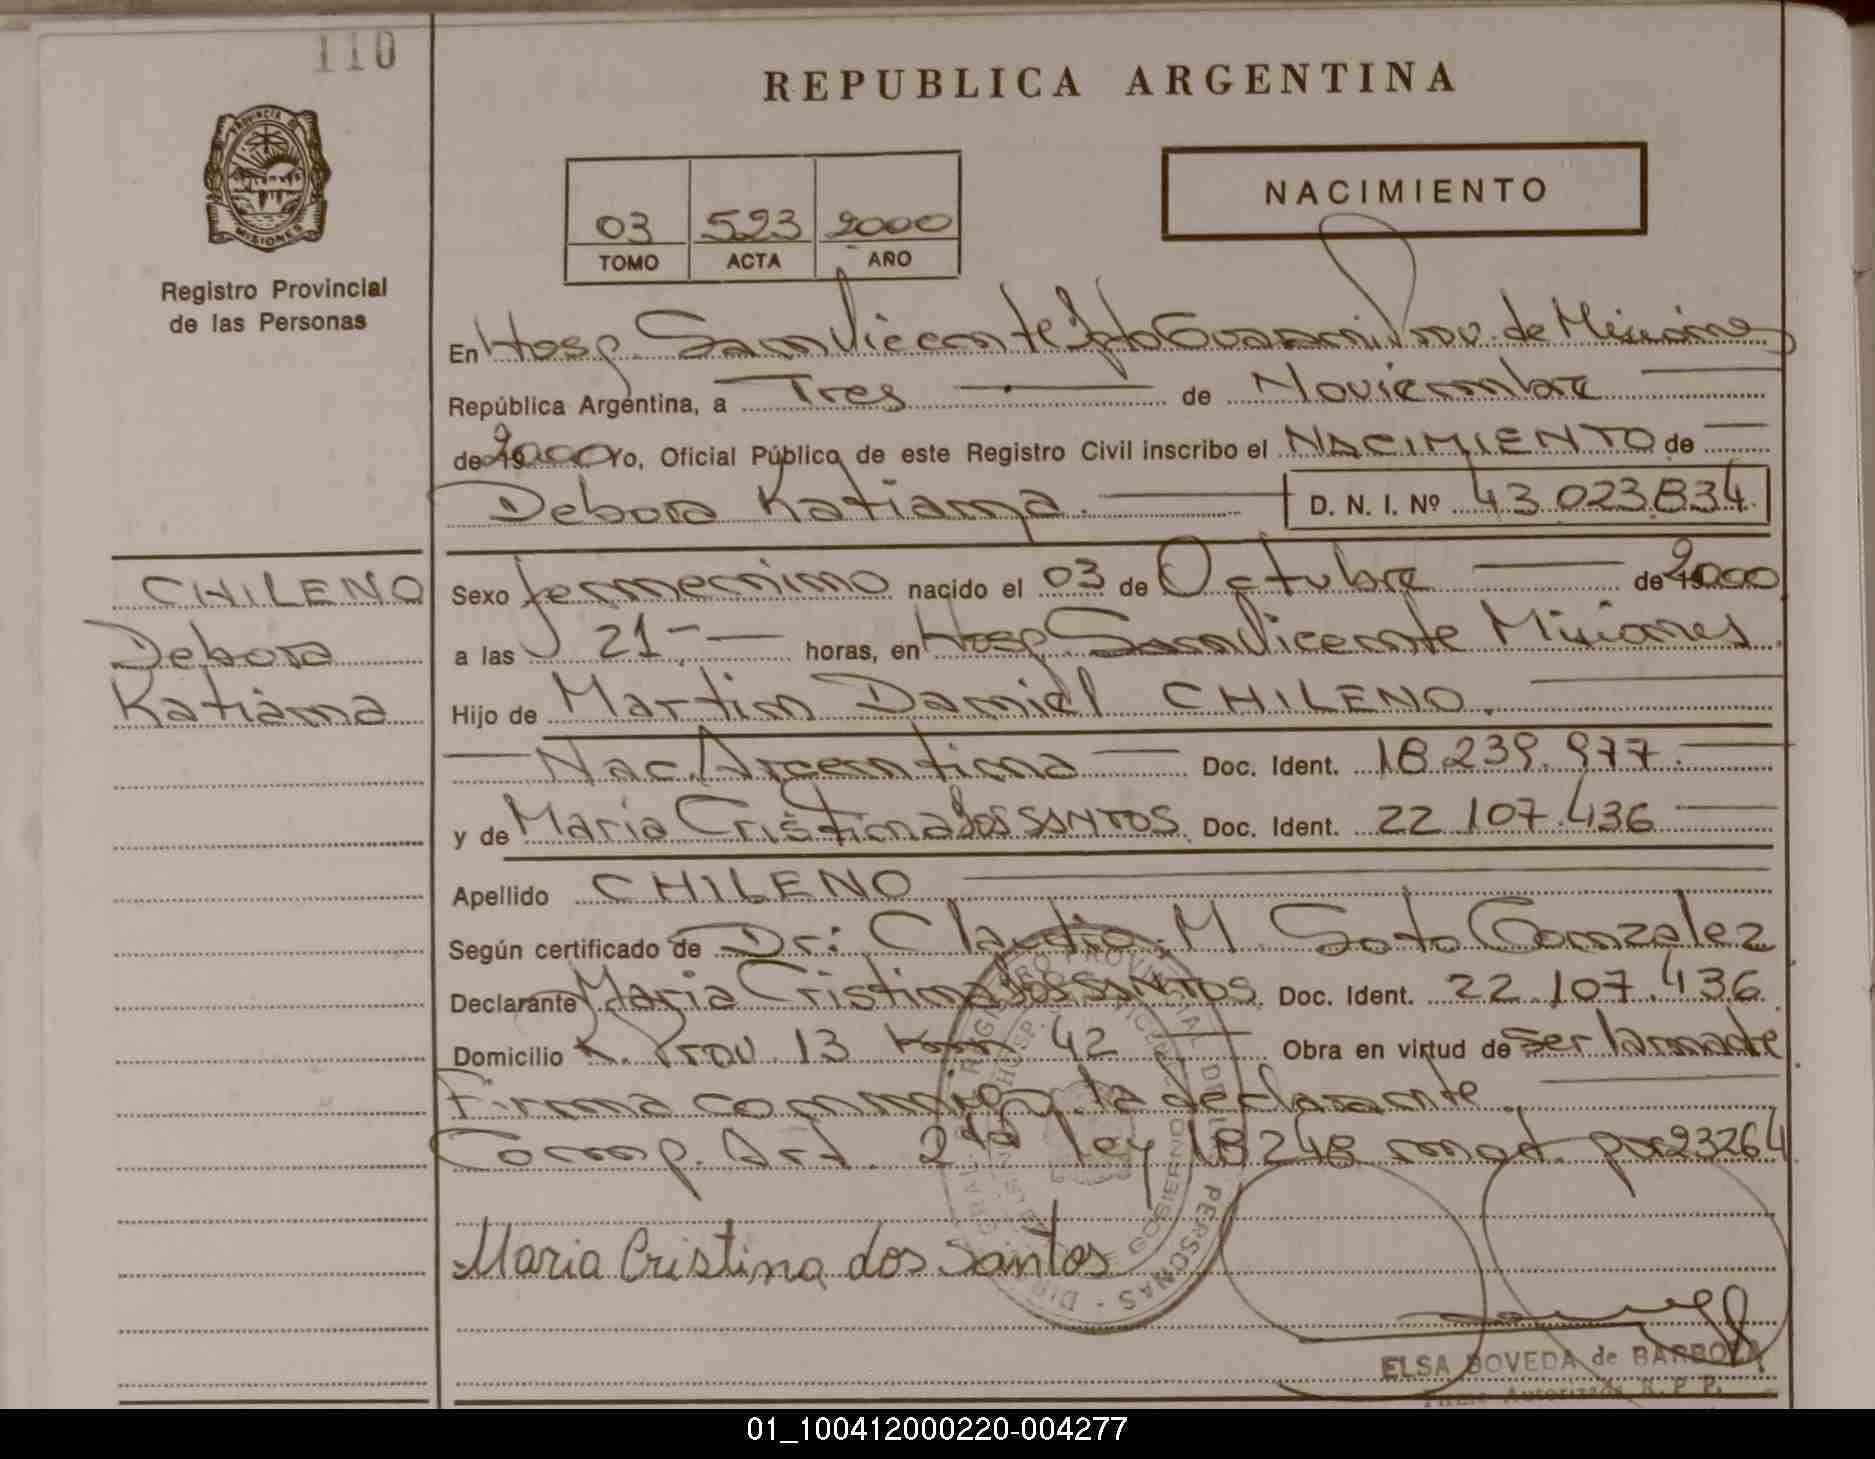 110
REPUBLICA ARGENTINA
PROVINCIA DE
MISIONES
Registro Provincial
de las Personas
NACIMIENTO
03 523 2000
TOMO ACTA AÑO
En Hosp. San Vicente Dpto Guarani Prov. de Misiones
República Argentina, a Tres de Noviembre
de 2000 Yo, Oficial Público de este Registro Civil inscribo el NACIMIENTO de
Debora Katiana. D. N. I. Nº 43.023.834
CHILENO
Debora
Katiana
Sexo femenino nacido el 03 de Octubre de 2000
a las 21 horas, en Hosp. San Vicente Misiones.
Hijo de Martin Daniel CHILENO.
Nac. Argentina Doc. Ident. 18.239.977.
y de Maria Cristina dos SANTOS. Doc. Ident. 22.107.436
Apellido CHILENO
Según certificado de Dr: Claudio. M. Soto Gonzalez
Declarante Maria Cristina dos SANTOS. Doc. Ident. 22.107.436
Domicilio R. Prov. 13 Km 42 Obra en virtud de ser la madre
Firma conmigo la declarante.
Comp. Art. 2do ley 18248 mod. por 23264
Maria Cristina dos Santos
ELSA BOVEDA de BARBOZA
Autorizada R. P. P.
01_100412000220-004277